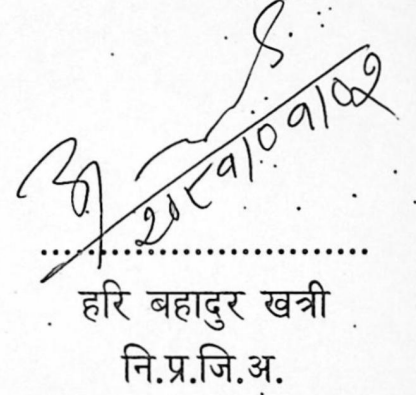 २०८१।०१।०२
हरि बहादुर खत्री
नि.प्र.जि.अ.